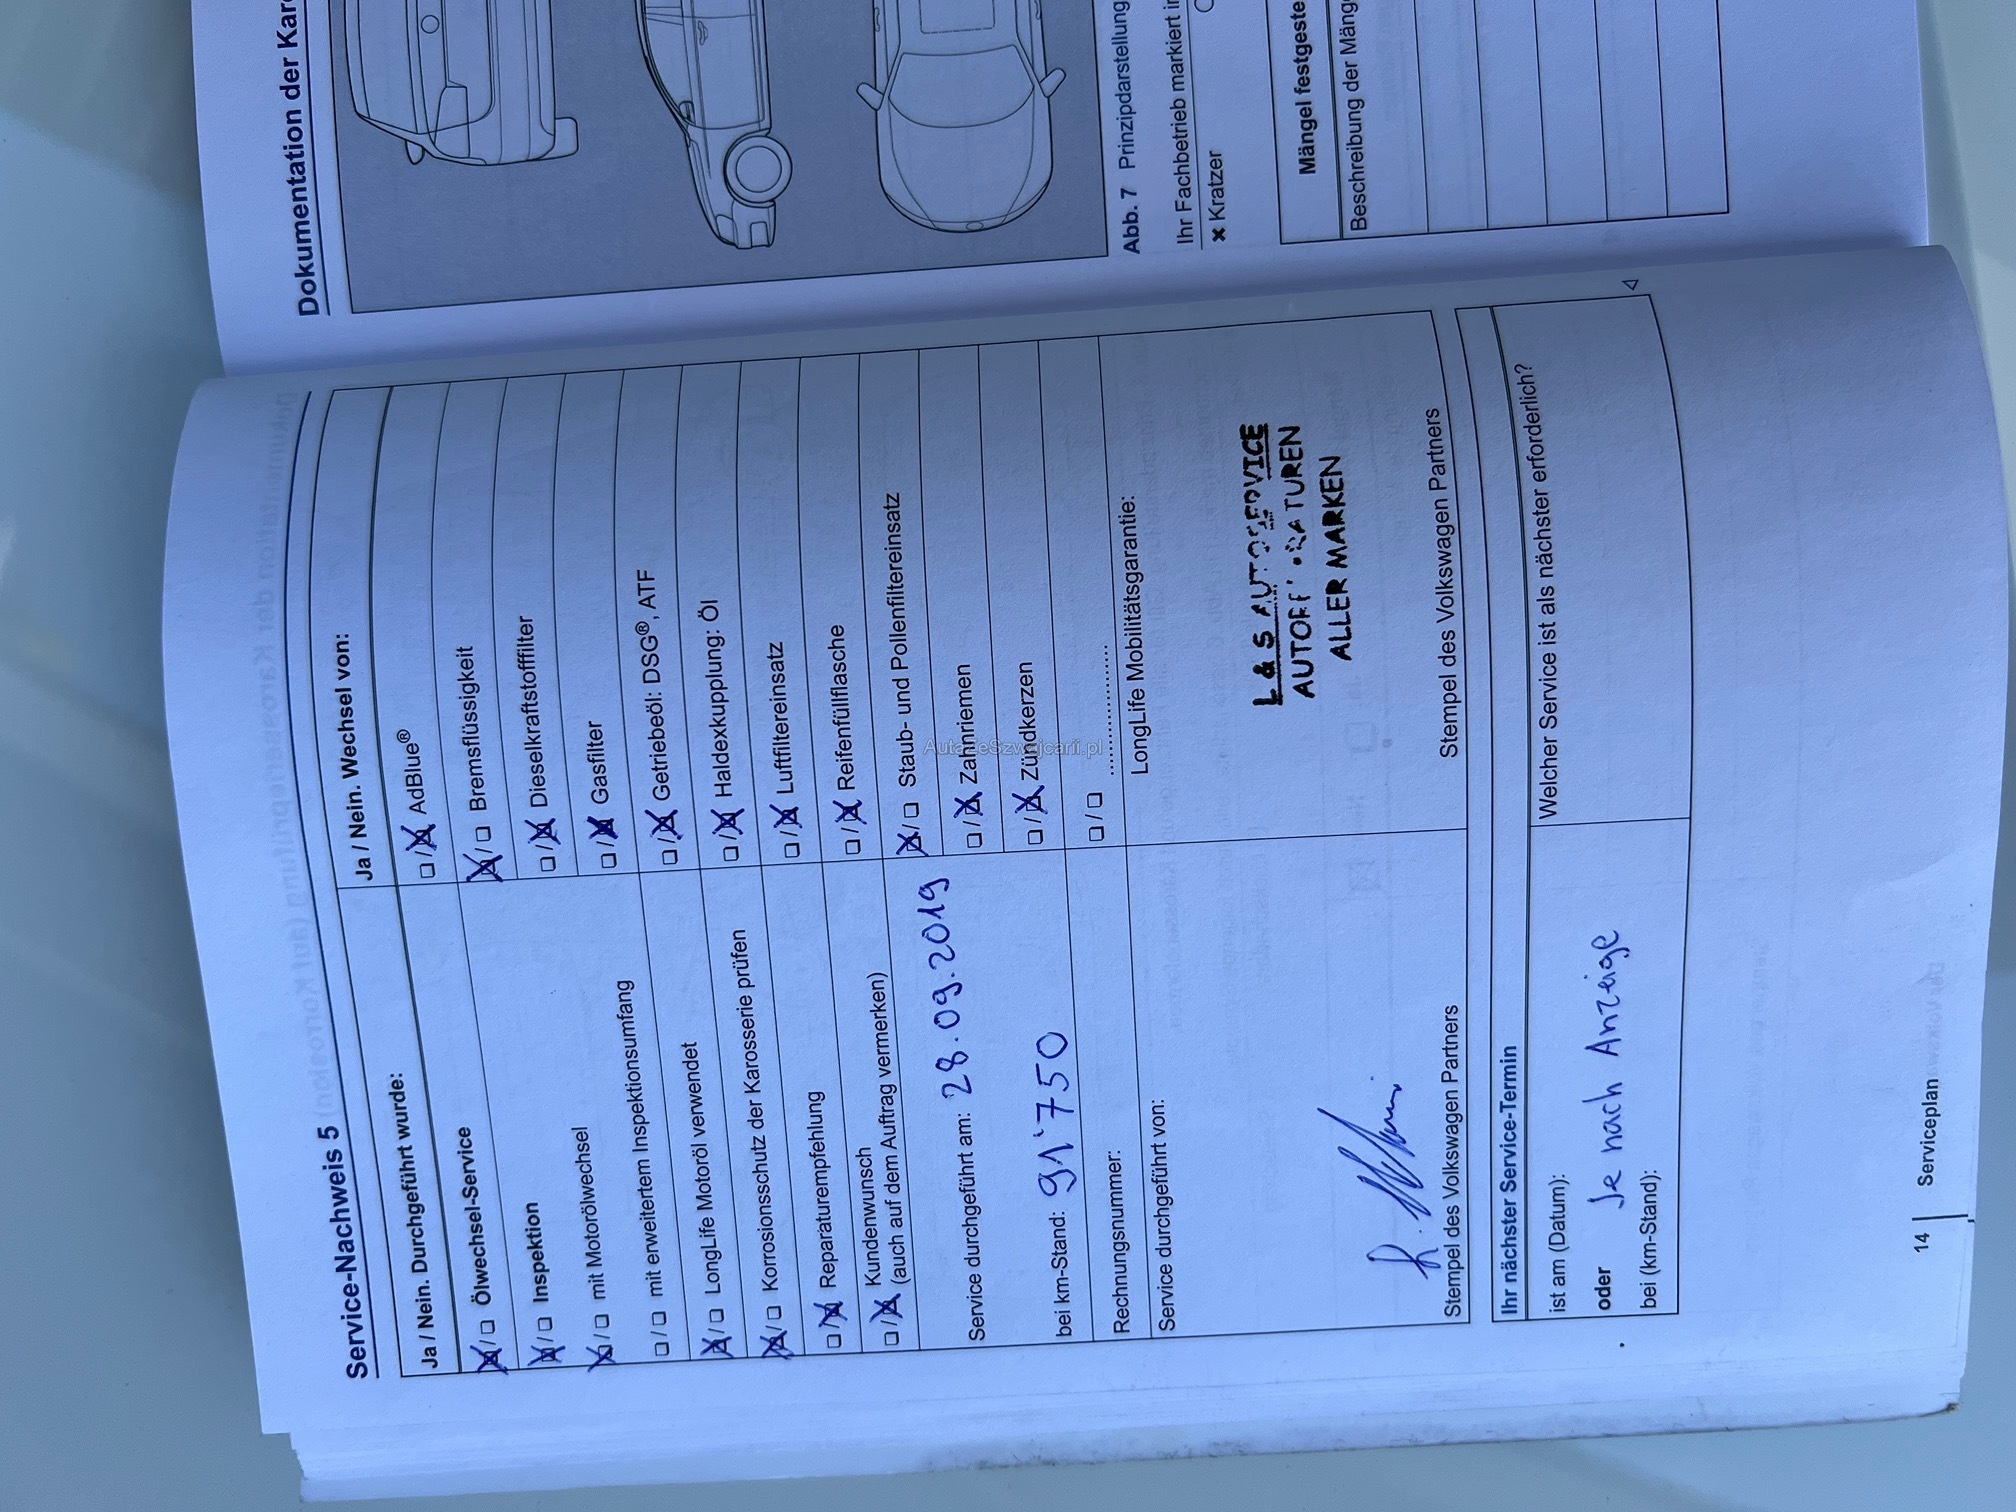 Service-Nachweis 5
Ja / Nein. Durchgeführt wurde:
☒/☐ Ölwechsel-Service
☒/☐ Inspektion
☒/☐ mit Motorölwechsel
☐/☐ mit erweitertem Inspektionsumfang
☒/☐ LongLife Motoröl verwendet
☒/☐ Korrosionsschutz der Karosserie prüfen
☐/☒ Reparaturempfehlung
☐/☒ Kundenwunsch
(auch auf dem Auftrag vermerken)
Service durchgeführt am: 28.09.2019
bei km-Stand: 91'750
Rechnungsnummer:
Service durchgeführt von:
Stempel des Volkswagen Partners
Ja / Nein. Wechsel von:
☐/☒ AdBlue®
☒/☐ Bremsflüssigkeit
☐/☒ Dieselkraftstofffilter
☐/☒ Gasfilter
☐/☒ Getriebeöl: DSG®, ATF
☐/☒ Haldexkupplung: Öl
☐/☒ Luftfiltereinsatz
☐/☒ Reifenfüllflasche
☒/☐ Staub- und Pollenfiltereinsatz
☐/☒ Zahnriemen
☐/☒ Zündkerzen
☐/☐ ....................
LongLife Mobilitätsgarantie:
L & S AUTOSERVICE
ALLER MARKEN
Stempel des Volkswagen Partners
Ihr nächster Service-Termin
ist am (Datum):
oder Je nach Anzeige
bei (km-Stand):
Welcher Service ist als nächster erforderlich?
14 Serviceplan
Dokumentation der Kar
Abb. 7 Prinzipdarstellung
Ihr Fachbetrieb markiert
× Kratzer
Mängel festgeste
Beschreibung der Mäng
AutazeSzwajcarii.pl